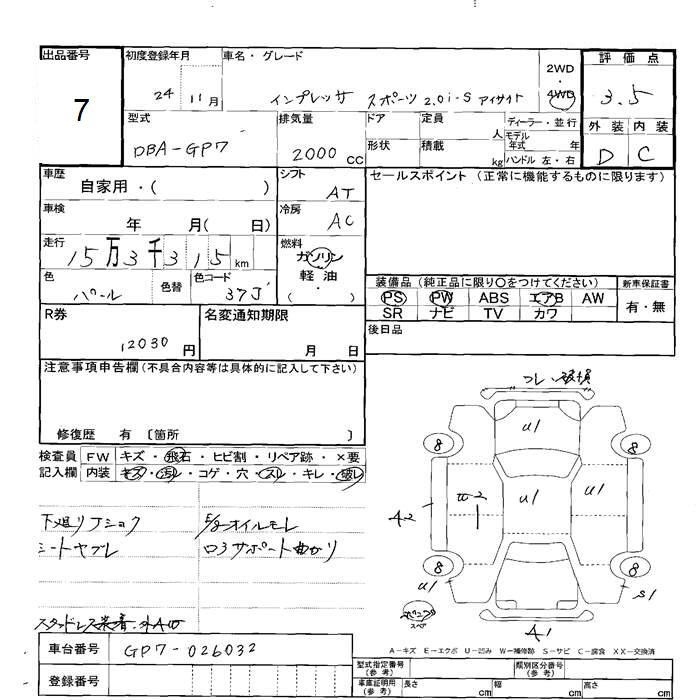 出品番号
7
初度登録年月
24 11月
車名・グレード
インプレッサ スポーツ 2.0i-S アイサイト
2WD
・
4WD
評価点
3.5
外装 内装
D C
型式
DBA-GP7
排気量
2000 cc
ドア
形状
定員
人
積載
kg
ディーラー・並行
モデル
年式 年
ハンドル 左・右
車歴
自家用・( )
シフト
AT
セールスポイント (正常に機能するものに限ります)
車検
年 月( 日)
冷房
AC
走行
15万3千315km
燃料
ガソリン
軽油
( )
色
パール
色替
色コード
37J
装備品 (純正品に限り〇をつけてください)
新車保証書
PS PW ABS エアB AW
有・無
SR ナビ TV カワ
R券
12030 円
名変通知期限
月 日
後日品
注意事項申告欄 (不具合内容等は具体的に記入して下さい)
修復歴 有 〔箇所 〕
検査員 FW キズ・飛石・ヒビ割・リペア跡・×要
記入欄 内装 キズ・汚れ・コゲ・穴・スレ・キレ・破レ
下廻りJショク
シートヤブレ
E/gオイルモレ
コアサポート曲がり
コレい破損
U1
8
8
A2
W2
U1
U1
8
8
U1
S1
スペ
A1
車台番号
GP7-026032
登録番号
A-キズ E-エクボ U-凹み W-補修跡 S-サビ C-腐食 XX-交換済
型式指定番号
(参考)
類別区分番号
(参考)
車庫証明用
(参考)
長さ cm
幅 cm
高さ cm